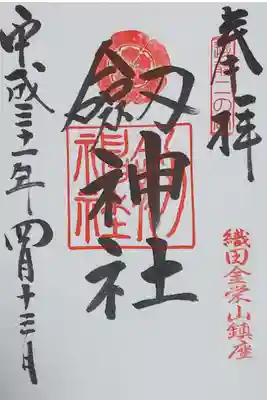 奉拝
二の宮
織田金栄山鎮座
劔神社
平成三十一年四月十三日